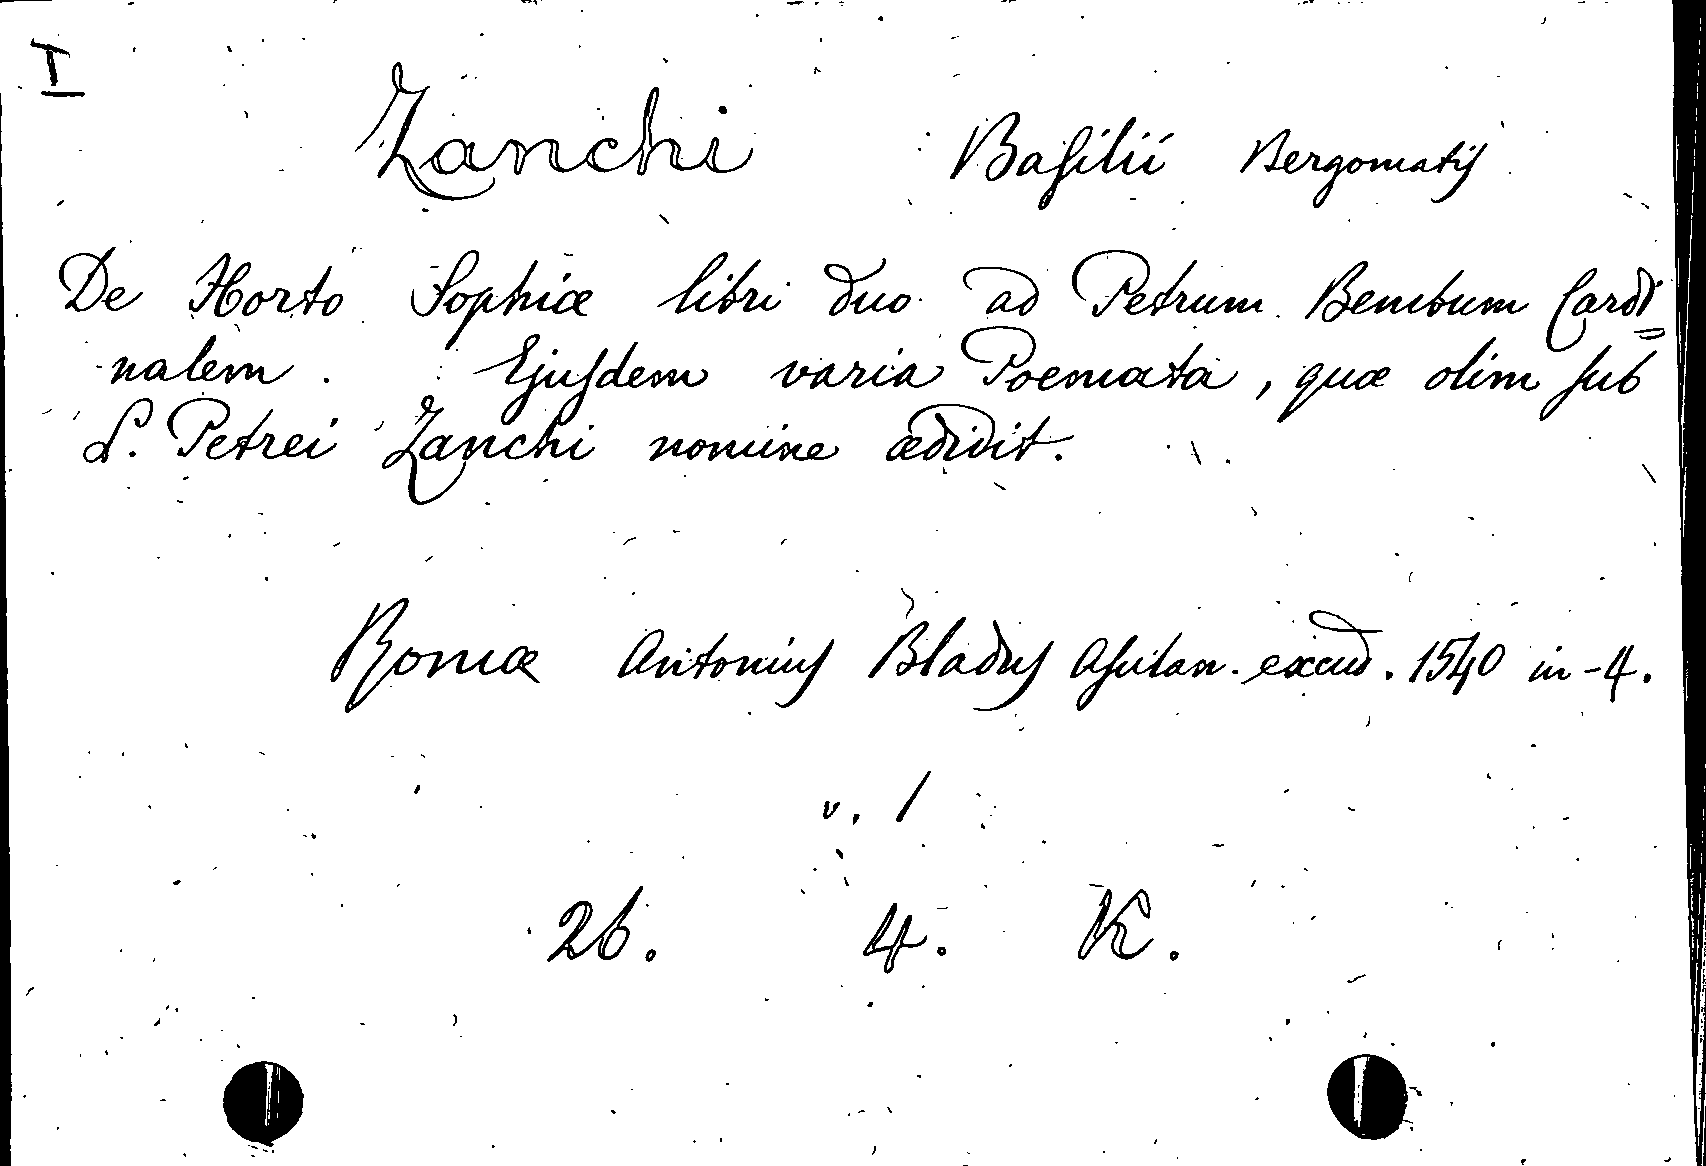 I
Zanchi Baſilii Bergomatiſ
De Horto Sophiæ libri duo ad Petrum Bembum Cardi=
nalem. Ejuſdem varia Poemata, quæ olim ſub
L. Petrei Zanchi nomine ædidit.
Romæ Antoniuſ Bladuſ Aſulan. excud. 1540 in-4.
v. 1
26. 4. K.